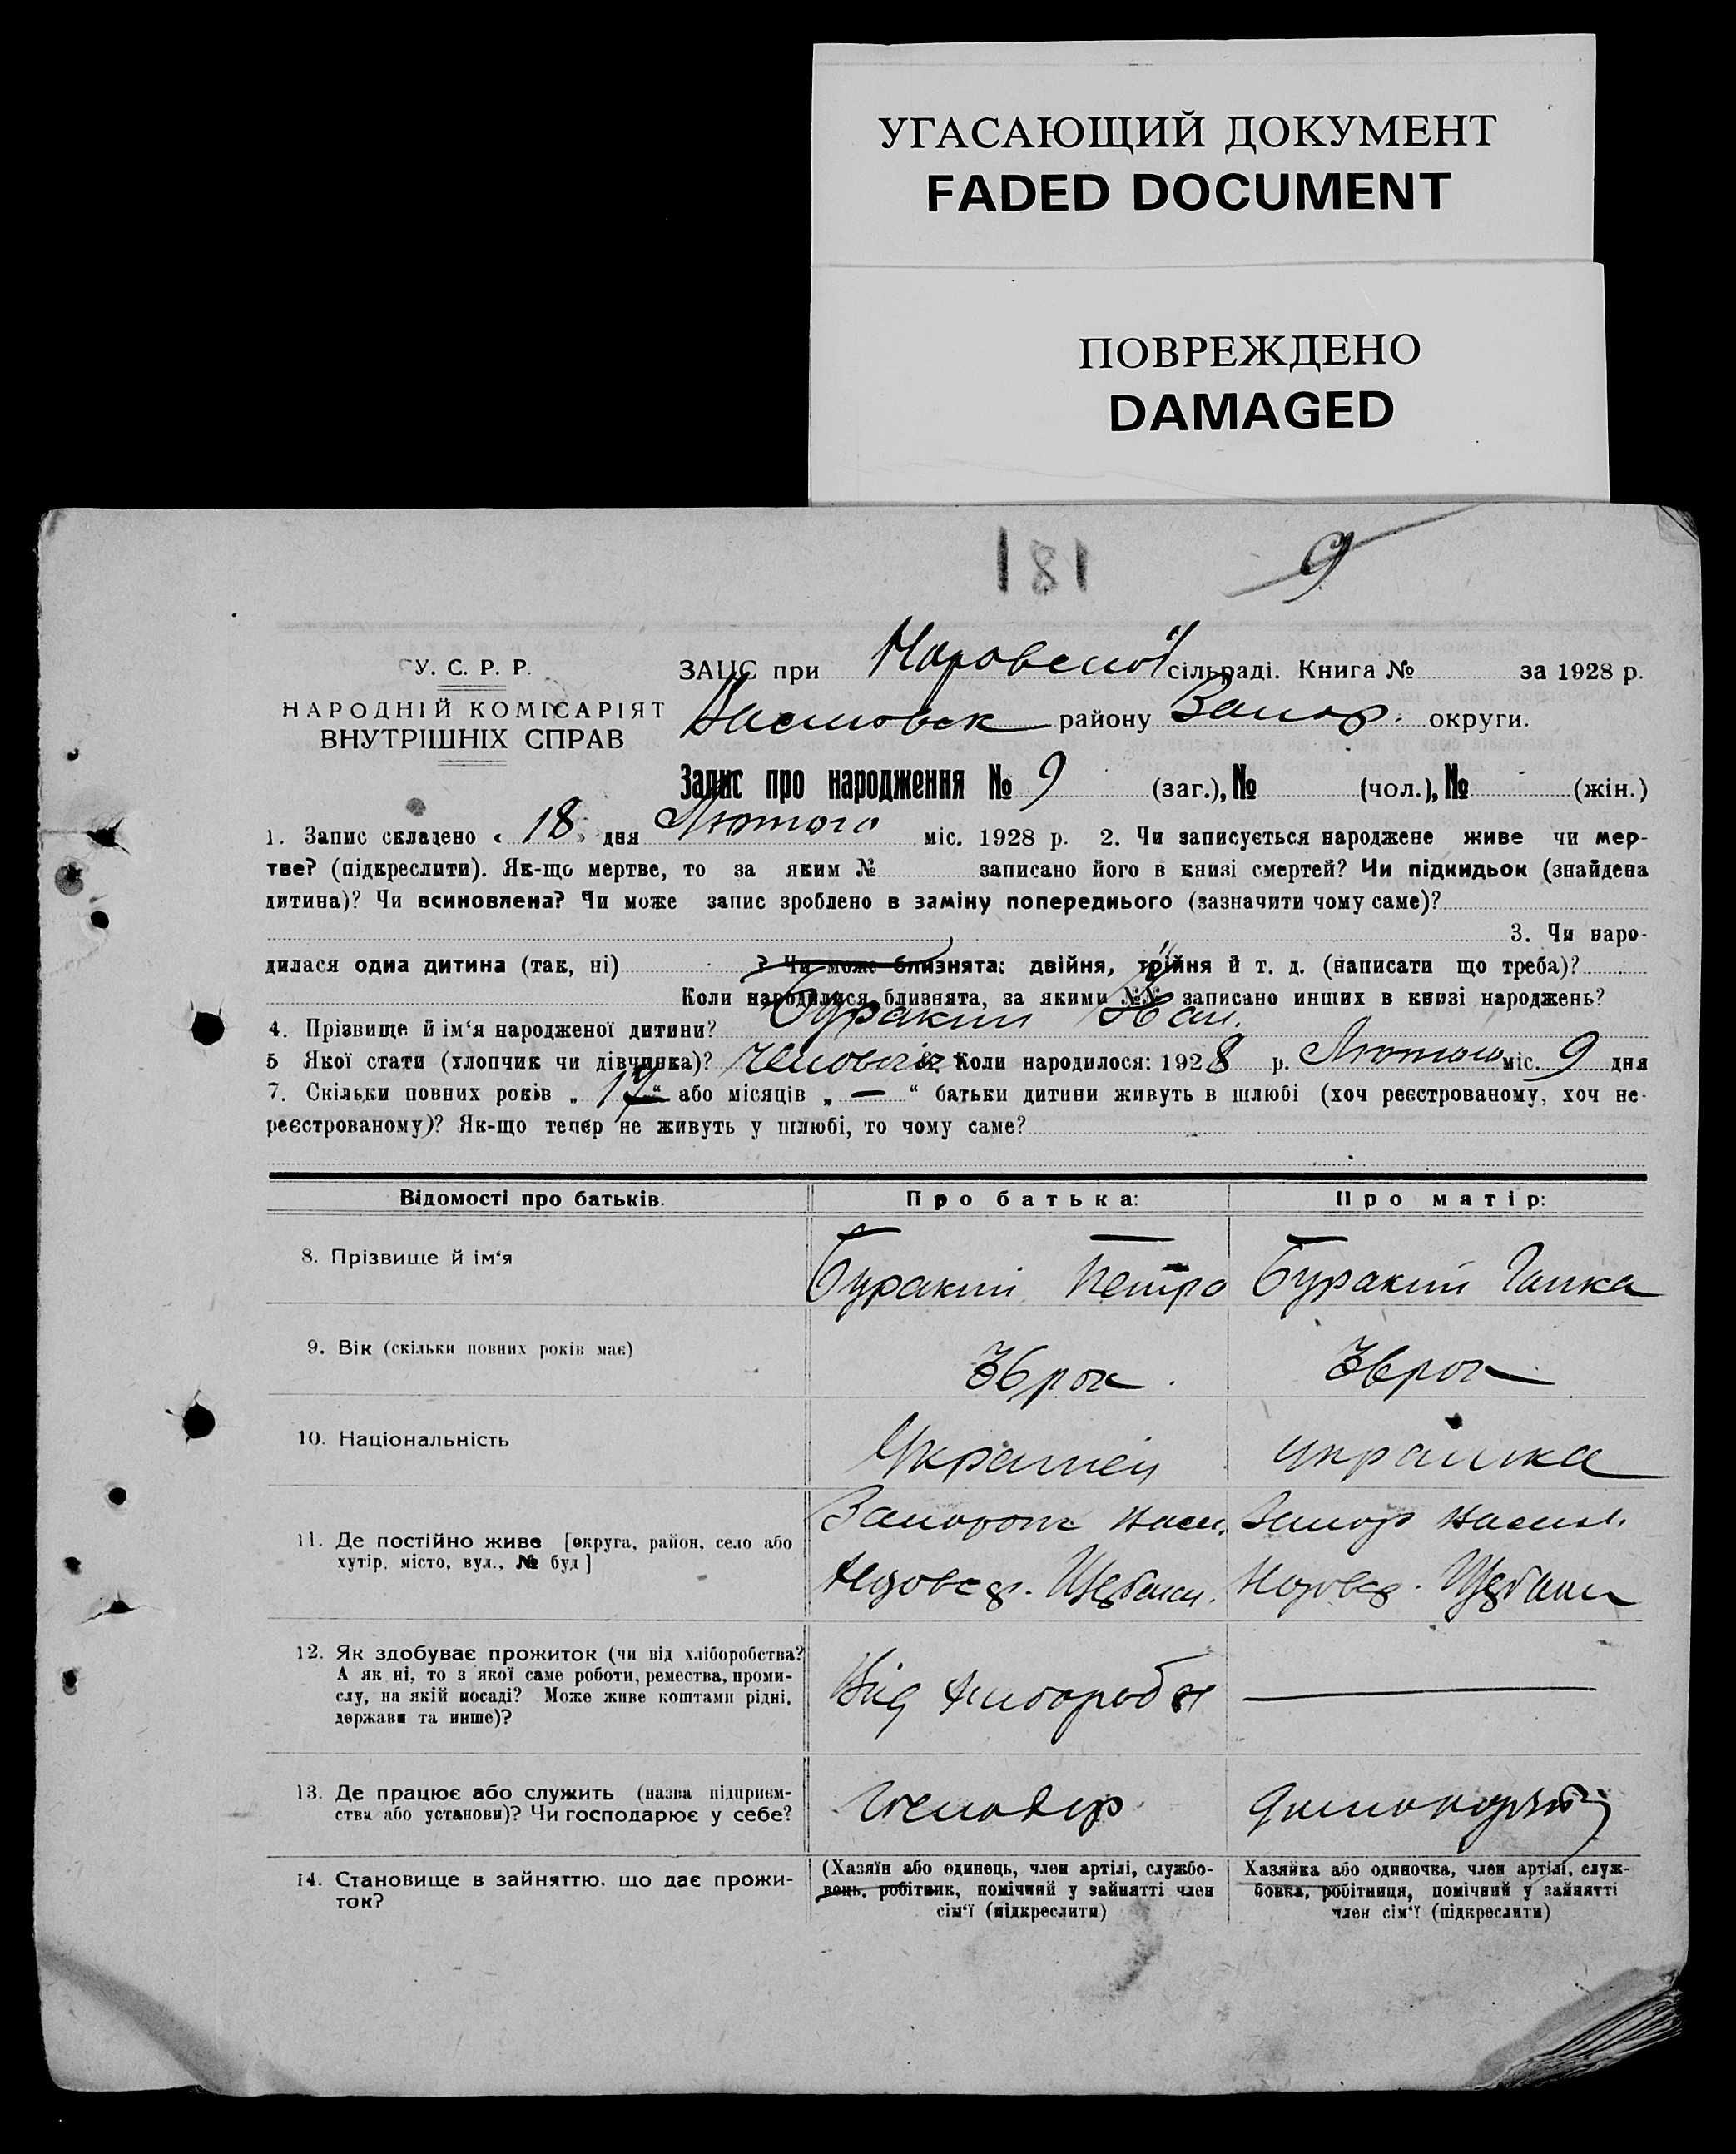 УГАСАЮЩИЙ ДОКУМЕНТ
FADED DOCUMENT
ПОВРЕЖДЕНО
DAMAGED
181 9
У. С. Р. Р.
НАРОДНІЙ КОМІСАРІЯТ
ВНУТРІШНІХ СПРАВ
ЗАЦС при сільраді. Книга № за 1928 р.
району Запор. округи.
Запис про народження № 9 (заг.), № (чол.), № (жін.)
1. Запис складено « 18 » дня Лютого міс. 1928 р. 2. Чи записується народжене живе чи мер-
тве? (підкреслити). Як-що мертве, то за яким № записано його в книзі смертей? Чи підкидьок (знайдена
дитина)? Чи всиновлена? Чи може запис зроблено в заміну попереднього (зазначити чому саме)?
3. Чи наро-
дилася одна дитина (так, ні) ? Чи може близнята: двійня, трійня й т. д. (написати що треба)?
Коли народилися близнята, за якими №№ записано инших в книзі народжень?
4. Прізвище й ім‘я народженої дитини? Буракий
5 Якої стати (хлопчик чи дівчинка)? Чоловіч. 6. Коли народилося: 1928 р. Лютого міс. 9 дня
7. Скільки повних років „ “ або місяців „ — “ батьки дитини живуть в шлюбі (хоч реєстрованому, хоч не-
реєстрованому)? Як-що тепер не живуть у шлюбі, то чому саме?
Відомості про батьків. Про батька: Про матір:
8. Прізвище й ім‘я Буракий Петро Буракий Ганка
9. Вік (скільки повних років має) 36 рок 36 рок
10. Національність Українец українка
11. Де постійно живе [округа, район, село або
хутір, місто, вул., № буд]
12. Як здобуває прожиток (чи від хліборобства?
А як ні, то з якої саме роботи, ремества, проми-
слу, на якій посаді? Може живе коштами рідні,
держави та инше)?
Від хлібороб —
13. Де працює або служить (назва підприєм-
ства або установи)? Чи господарює у себе?
14. Становище в зайняттю, що дає прожи-
ток?
(Хазяїн або одинець, член артілі, службо-
вець, робітник, помічний у зайнятті член
сім‘ї (підкреслити)
Хазяйка або одиночка, член артілі, служ-
бовка, робітниця, помічний у зайнятті
член сім‘ї (підкреслити)